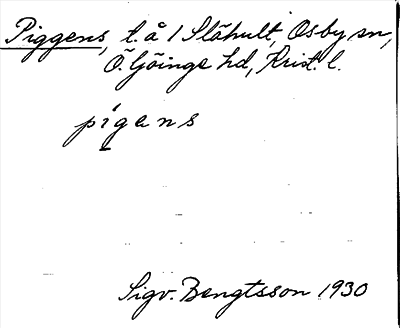 Piggens, t. å 1 Slähult, Osby sn,
Ö. Göinge hd, Krist. l.
pigans
Sigv. Bengtsson 1930